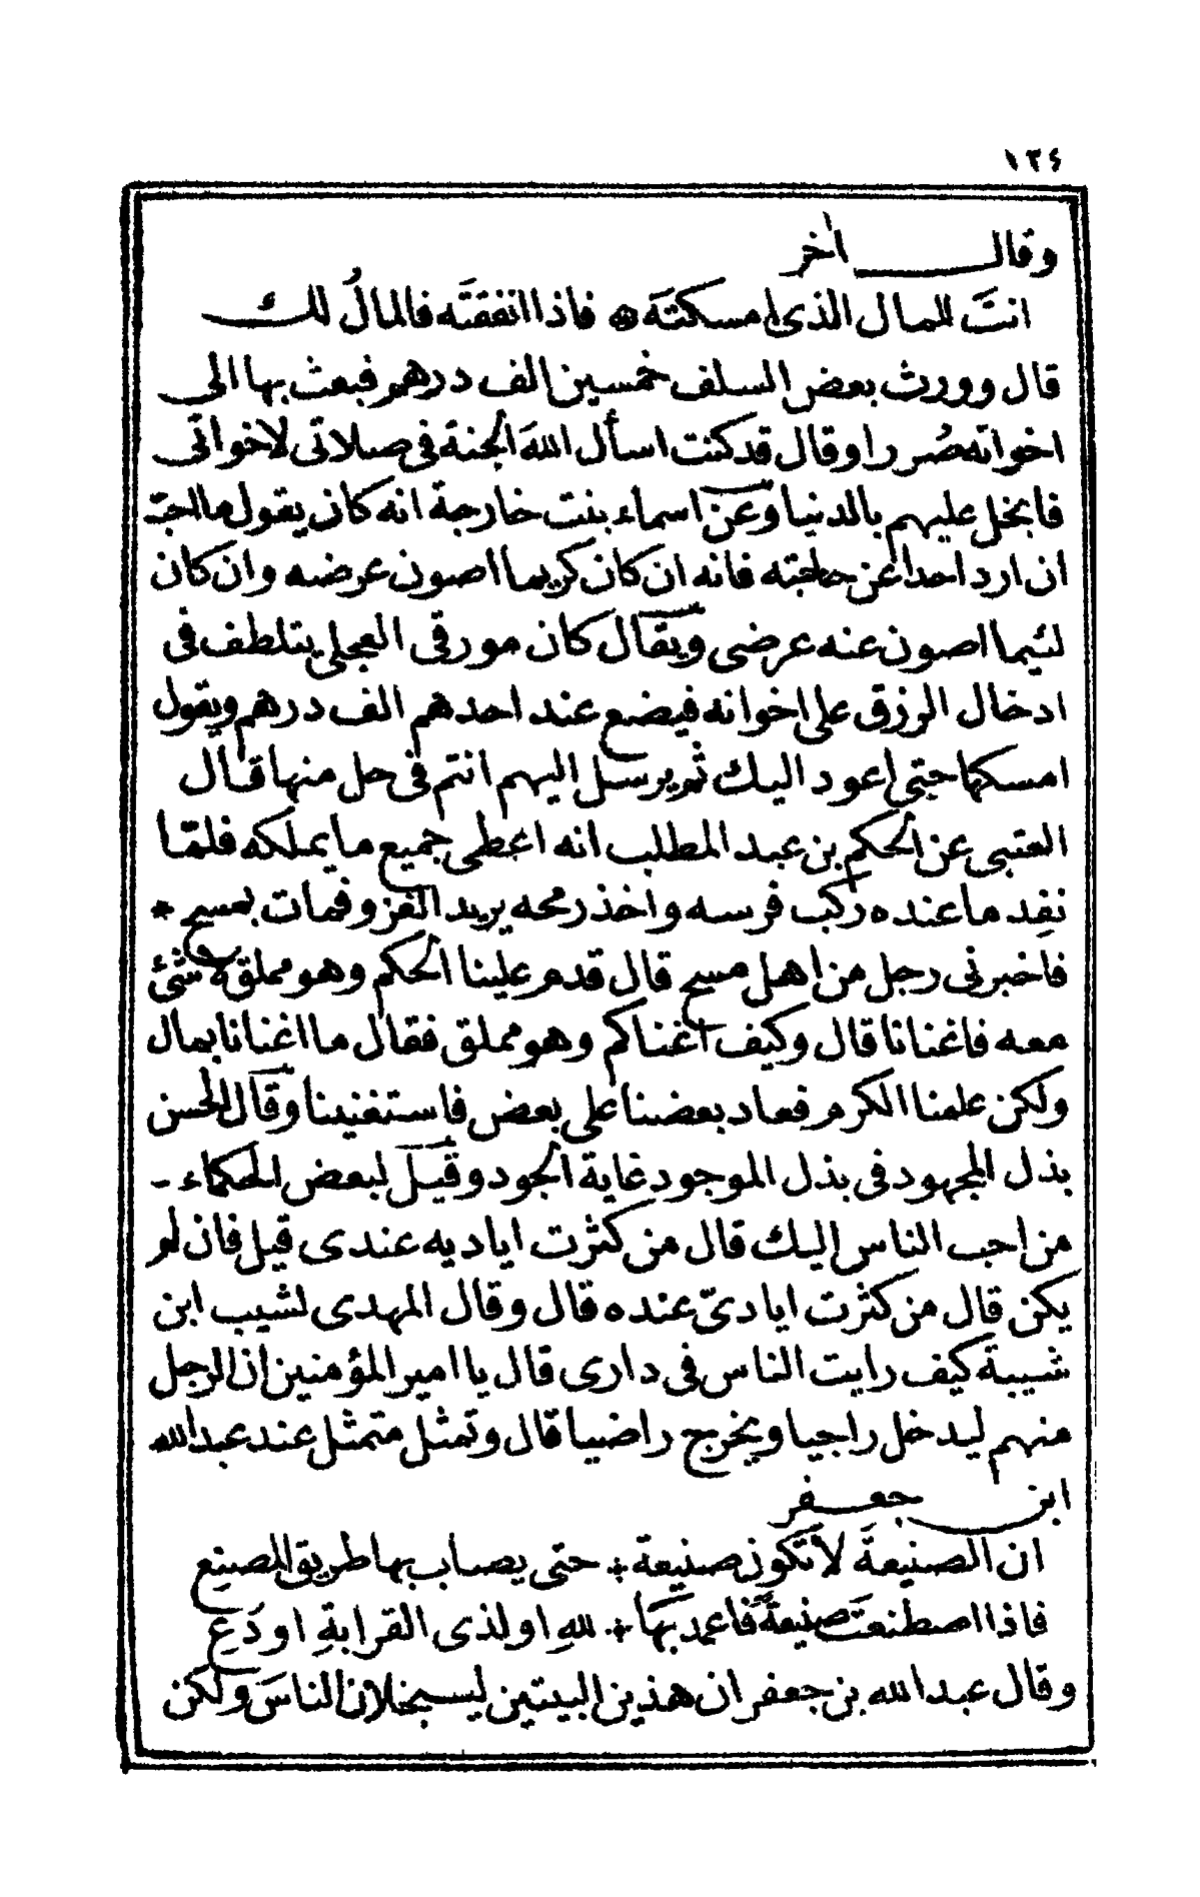 ١٣٤
وقال اخر
انتَ للمال الذى امسكتَه ۞ فاذا انفقتَه فالمالُ لك
قال وورث بعض السلف خمسين الف درهم فبعث بها الى
اخوانه صُررا وقال قد كنت اسأل اللهَ الجنة فى صلاتى لاخوانى
فابخل عليهم بالدنيا وعن اسماء بنت خارجة انه كان يقول ما احبّ
ان ارد احدا عن حاجته فانه ان كان كريما اصون عرضه وان كان
لئيما اصون عنه عرضى ويقال كان مورقى العجلى يتلطف فى
ادخال الرزق على اخوانه فيضع عند احدهم الف درهم ويقول
امسكها حتى اعود اليك ثم يرسل اليهم انتم فى حل منها قال
العتبى عن الحكم بن عبد المطلب انه اعطى جميع ما يملكه فلمّا
نفِد ما عنده ركب فرسه واخذ رمحه يريد الغزو فمات بمسج *
فاخبرنى رجل من اهل مسج قال قدم علينا الحكم وهو مملق لا شئ
معه فاغنانا قال وكيف اغناكم وهو مملق فقال ما اغنانا بمال
ولكن علمنا الكرم فعاد بعضنا على بعض فاستغنينا وقال الحسن
بذل المجهود فى بذل الموجود غاية الجود وقيل لبعض الحكماء -
من احب الناس اليك قال من كثرت اياديه عندى قيل فان لم
يكن قال من كثرت ايادىّ عنده قال وقال المهدى لشيب ابن
شيبة كيف رايت الناس فى دارى قال يا امير المؤمنين ان الرجل
منهم ليدخل راجيا ويخرج راضيا قال وتمثل متمثل عند عبد الله
ابن جعفر
ان الصنيعةَ لا تكون صنيعة * حتى يصاب بها طريق المصنع
فاذا اصطنعتَ صنيعةً فاعمد بهَا * للهِ او لذى القرابةِ او دَعِ
وقال عبد الله بن جعفر ان هذين البيتين ليسبخلان الناسَ ولكن